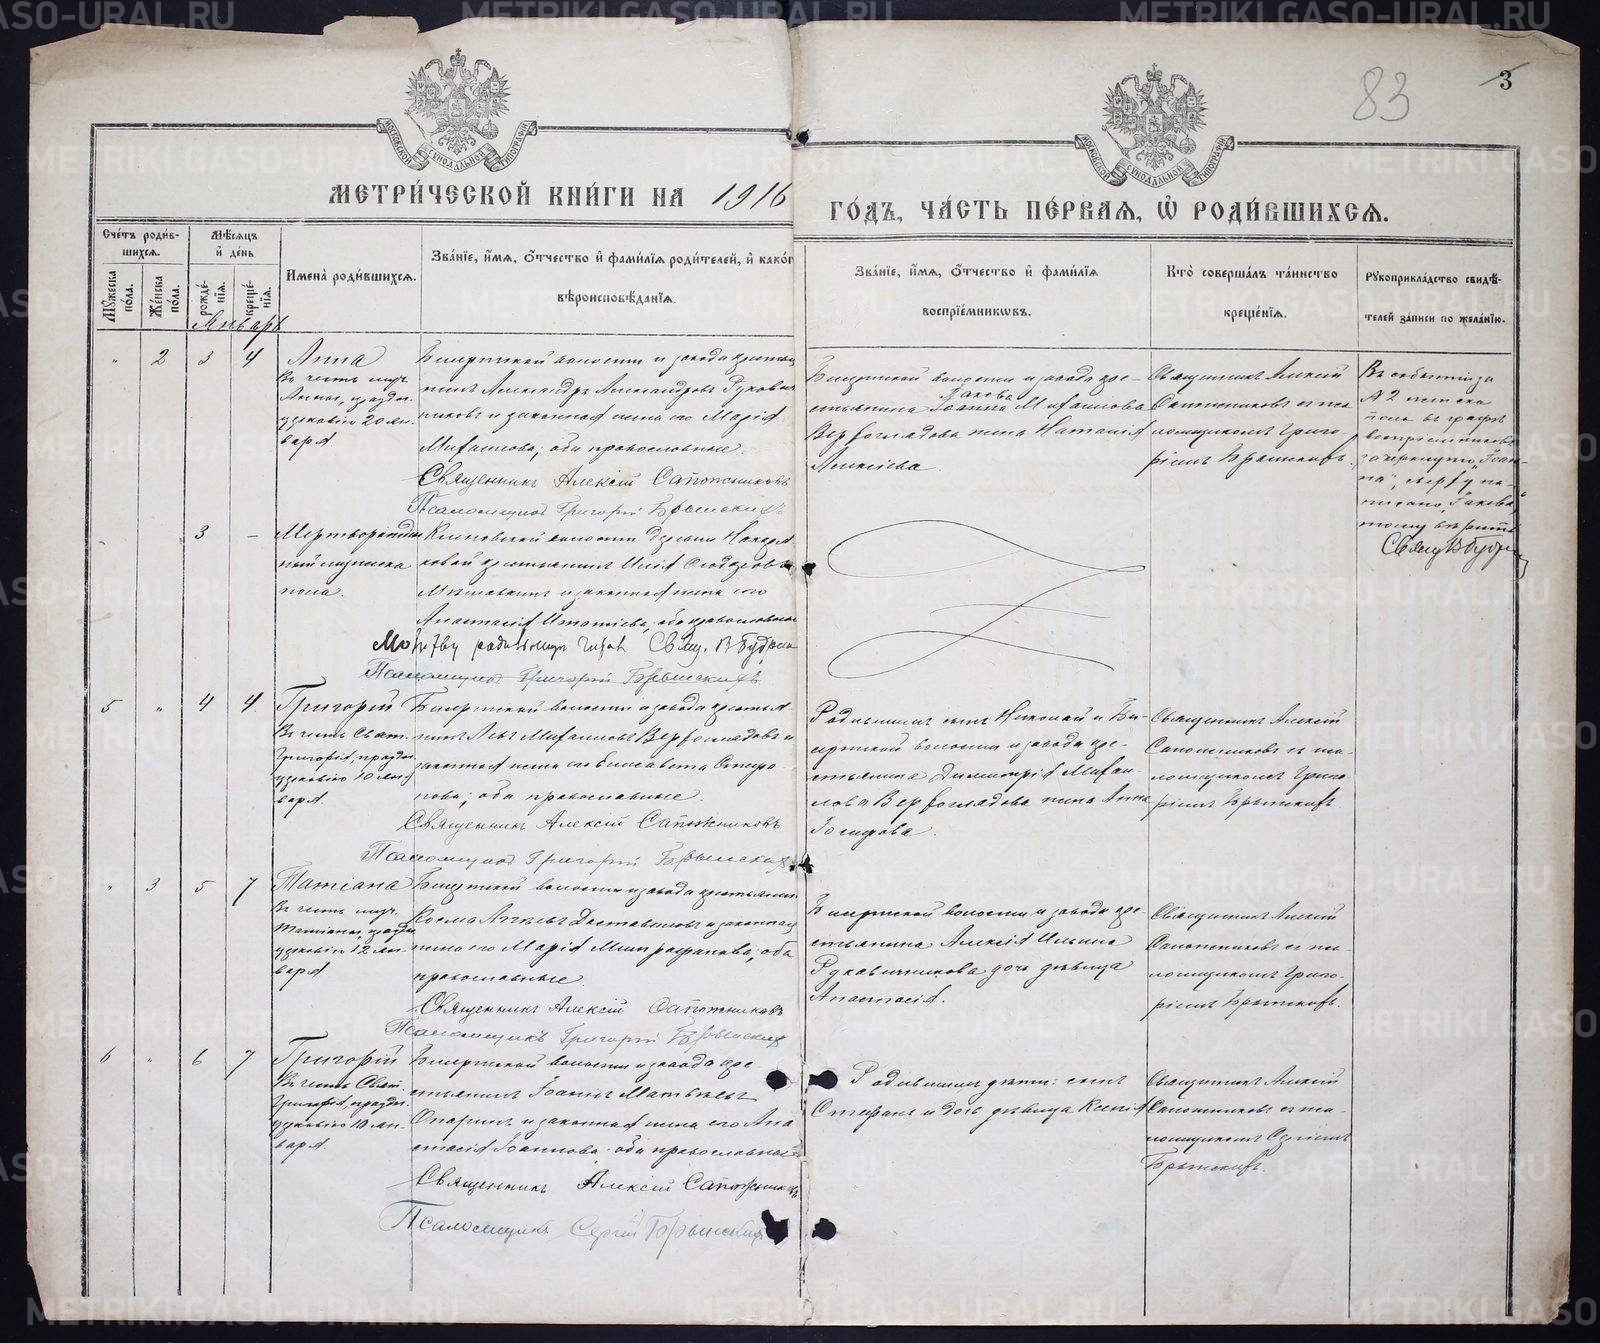 83
3
МОСКОВСКОЙ СѴНОДАЛЬНОЙ ТИПОГРАФІИ
МОСКОВСКОЙ СѴНОДАЛЬНОЙ ТИПОГРАФІИ
МЕТРИ́ЧЕСКОЙ КНИ́ГИ НА 1916
ГО́ДЪ, ЧА́СТЬ ПЕ́РВАЯ, Ѡ҆ РОДИ́ВШИХСЯ.
Сче́тъ роди́в-
шихся.
Му́жеска по́ла.
Же́нска по́ла.
Мѣ́сяцъ
и҆ де́нь
рожде́-
нія.
креще́-
нія.
Январь
Имена̀ роди́вшихся.
Зва́ніе, и҆́мя, ѻ҆́тчество и҆ фами́лія роди́телей, и҆ како́г
вѣроисповѣ́данія.
Зва́ніе, и҆́мя, ѻ҆́тчество и҆ фами́лія
воспріе́мниковъ.
Кто̀ соверша́лъ та́инство
креще́нія.
Рукоприкла́дство свидѣ́-
телей за́писи по жела́нію.
" 2 3 4 Анна
Въ честь муч.
Анны, праздн.
церковію 20 ян-
варя.
Бисертской волости и завода крестья
нинъ Александръ Александровъ Рукавиш
никовъ и законная жена его Марія
Михаилова, оба православные.
Священникъ Алексій Сапожниковъ
Псаломщикъ Григорій Брыжскихъ
Бисертской волости и завода кре-
Іакова
стьянина Іоанна Михаилова
Верхоглядова жена Наталія
Алексіева.
Священникъ Алексій
Сапожниковъ съ пса
ломщикомъ Григо
ріемъ
Въ событіи за
№ 2 женска
пола въ графѣ
воспріемниковъ
зачеркнуто "Іоан-
на", сверху на-
писано "Іакова",
тому вѣрить
Свящ.
3 — Мертворожден
ный мужеска
пола.
Кленовской волости деревни
крестьянинъ Илія Ѳеодоровъ
и законная жена его
Анастасія оба православные
Молитву родильницѣ читалъ Свящ.
Псаломщикъ Григорій
5 " 4 4 Григорій
Въ честь Свят.
Григорія, праздн.
церковію 10 ян-
варя.
Бисертской волости и завода крестья
нинъ Левъ Михаиловъ Верхоглядовъ и
законная жена его Елисавета
оба православные.
Священникъ Алексій Сапожниковъ
Псаломщикъ Григорій
Родившимъ сынъ Николай и Би-
сертской волости и завода кре-
стьянина Димитрія Михаи-
лова Верхоглядова жена Анна
Іосифова.
Священникъ Алексій
Сапожниковъ съ пса-
ломщикомъ Григо
ріемъ
" 3 5 7 Татіана
Въ честь муч.
Татіаны, праздн
церковію 12 ян-
варя
Бисертской волости и завода крестьянинъ
Косма и законная
жена его Марія Митрофанова, оба
православные.
Священникъ Алексій Сапожниковъ
Псаломщикъ Григорій
Бисертской волости и завода кре-
стьянина Алексія Ильина
Рукавишникова дочь дѣвица
Анастасія.
Священникъ Алексій
Сапожниковъ съ пса-
ломщикомъ Григо-
ріемъ
6 " 6 7 Григорій
Въ честь Свят.
Григорія, праздн.
церковію 10 ян-
варя.
Бисертской волости и завода кре
стьянинъ Іоаннъ Матвѣевъ
Опаринъ и законная жена его Ана
стасія Іоаннова, оба православные
Священникъ Алексій Сапожниковъ
Псаломщикъ Сергій
Родившимъ дѣти: сынъ
Стефанъ и дочь дѣвица Ксенія
Священникъ Алексій
Сапожниковъ съ пса-
ломщикомъ Сергіемъ
METRIKI.GASO-URAL.RU